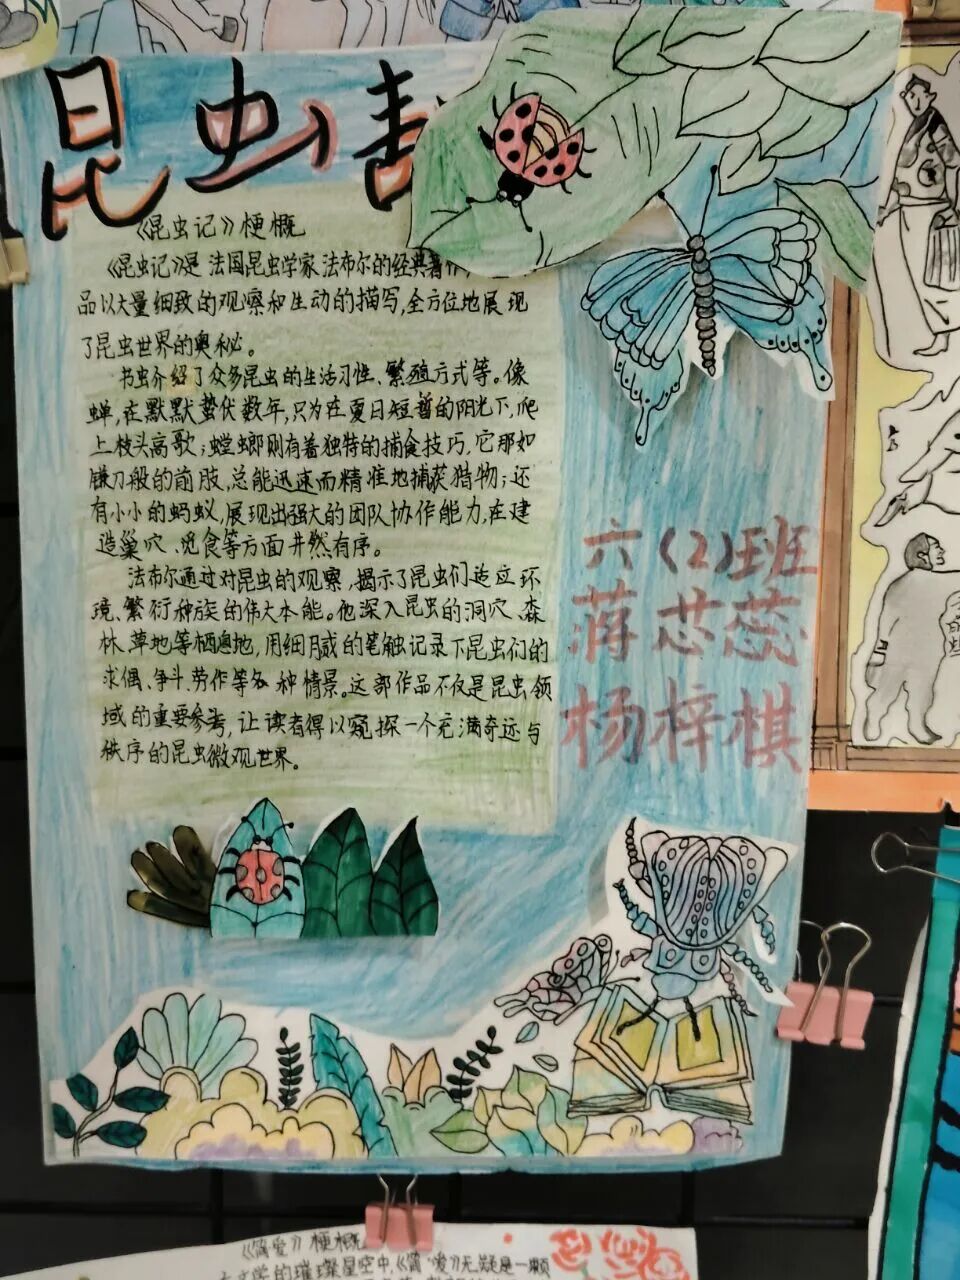 昆虫
《昆虫记》梗概
《昆虫记》是法国昆虫学家法布尔的经典著作
品以大量细致的观察和生动的描写,全方位地展现
了昆虫世界的奥秘。
书虫介绍了众多昆虫的生活习性、繁殖方式等。像
蝉,在默默蛰伏数年,只为在夏日短暂的阳光下,爬
上枝头高歌;螳螂则有着独特的捕食技巧,它那如
镰刀般的前肢,总能迅速而精准地捕获猎物;还
有小小的蚂蚁,展现出强大的团队协作能力,在建
造巢穴、觅食等方面井然有序。
法布尔通过对昆虫的观察,揭示了昆虫们适应环
境、繁衍种族的伟大本能。他深入昆虫的洞穴、森
林、草地等栖息地,用细腻的笔触记录下昆虫们的
求偶、争斗、劳作等各种情景。这部作品不仅是昆虫领
域的重要参考,让读者得以窥探一个充满奇迹与
秩序的昆虫微观世界。
六(2)班
蒋芯蕊
杨梓棋
《简爱》梗概
文学的璀璨星空中,《简·爱》无疑是一颗